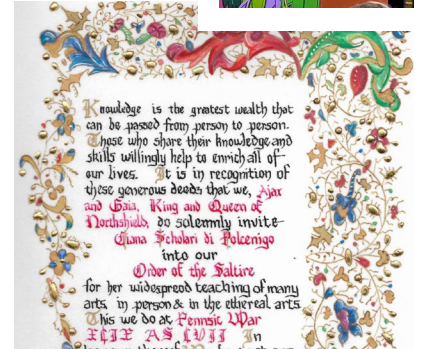 Knowledge is the greatest wealth that
can be passed from person to person.
Those who share their knowledge and
skills willingly help to enrich all of
our lives. It is in recognition of
these generous deeds that we, Ajax
and Gaia, King and Queen of
Northshield, do solemnly invite
Ciana Scholari di Polcenigo
into our
Order of the Saltire
for her widespread teaching of many
arts, in person & in the ethereal arts
This we do at Pennsic War
XLIX AS LVII In